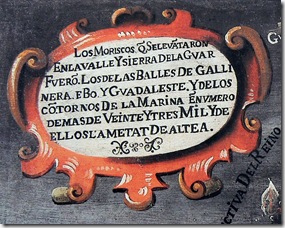 LOS MORISCOS Q̃ SELEVĀTARON
EN LA VALLE Y SIERRA DELA GUAR
FUERŌ. LOS DE LAS BALLES DE GALLI
NERA. EBO, Y GVADALESTE, Y DE LOS
CŌTORNOS DE LA MARINA EN VMERO
DE MAS DE VEINTE Y TRES MIL Y DE
ELLOS LA METAT DE ALTEA.
CTIVA DEL REINO